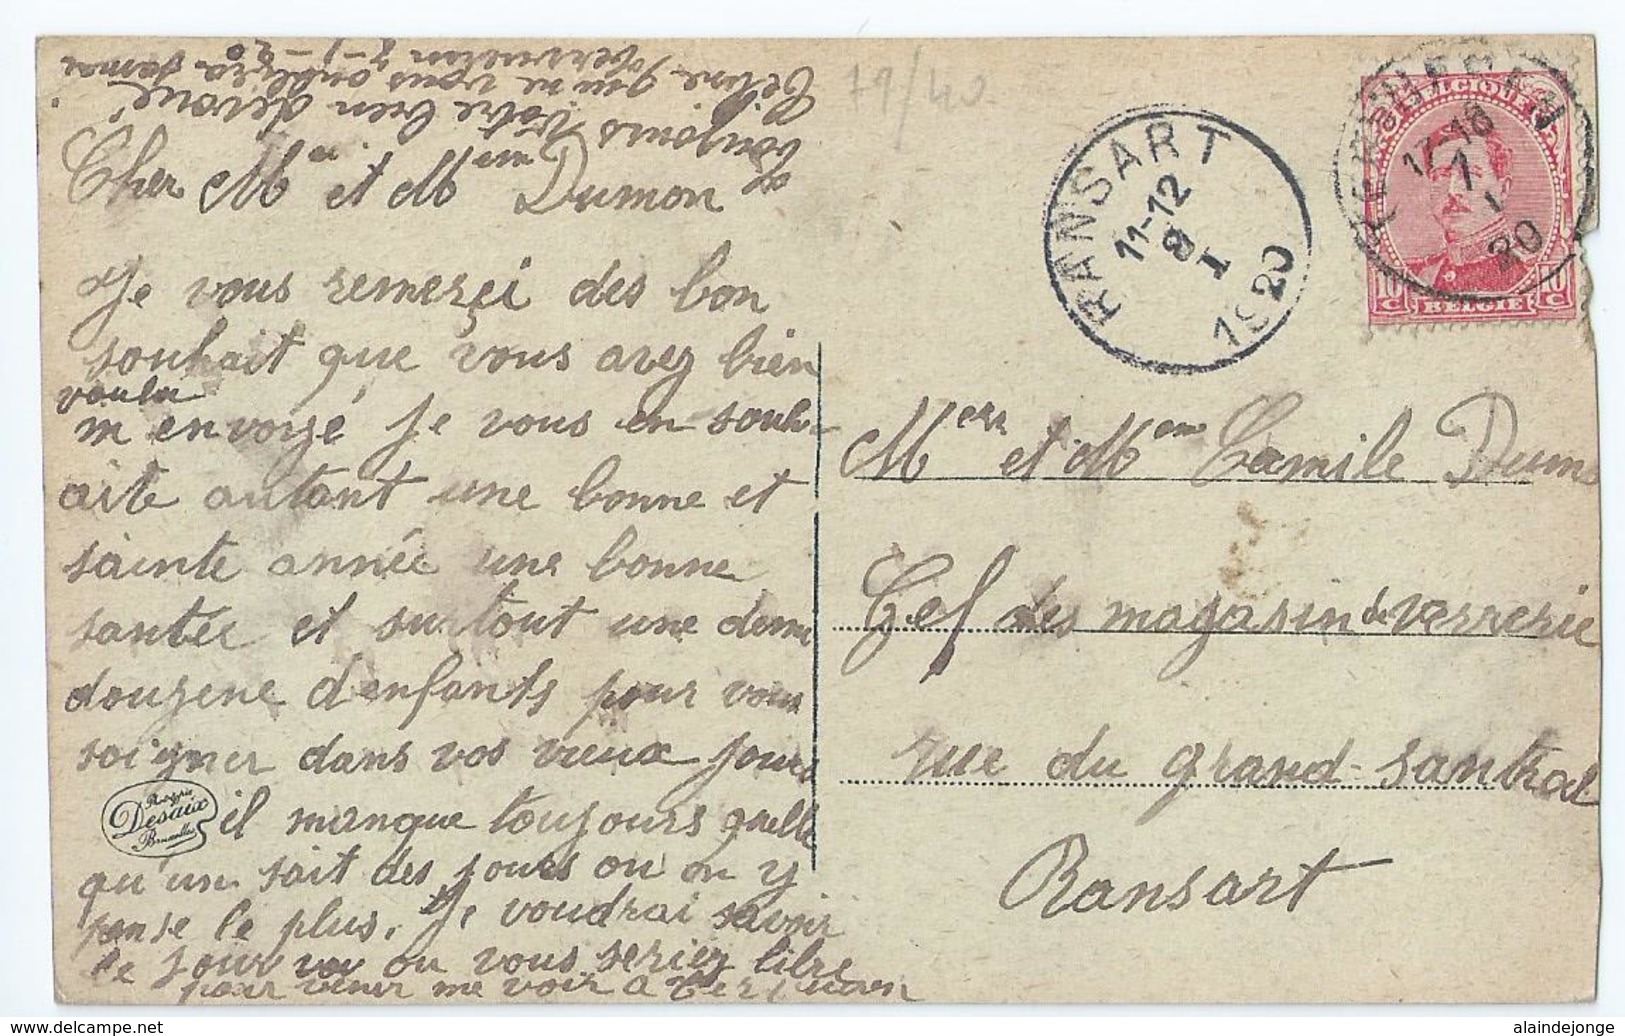 Cher M et Mme Dumon
Je vous remerçi des bon
souhait que vous avez bien
voulu
m envoyé je vous en souh-
aite autant une bonne et
sainte année une bonne
santée et surtout une demi
douzene d'enfants pour vous
soigner dans vos vieux jours
il manque toujours quelle
qu'un sait des jours ou on y
pense le plus. Je voudrai savoir
le jour ou vous seriez libre
pour venir me voir a Tervueren
toujours Votre bien dévoué
Céline qui ne vous oubliera jamai
Tervuren 7-1-20
79/40
RANSART
11-12
8
I
1920
TERVUEREN
17-18
7
I
20
BELGIQUE
10 C 10 C
BELGIE
Mers et Mem Camile Dum
Cef des magasin de verrerie
rue du grand-santral
Ransart
Desaix
Bruxelles
delcampe.net
alaindejonge